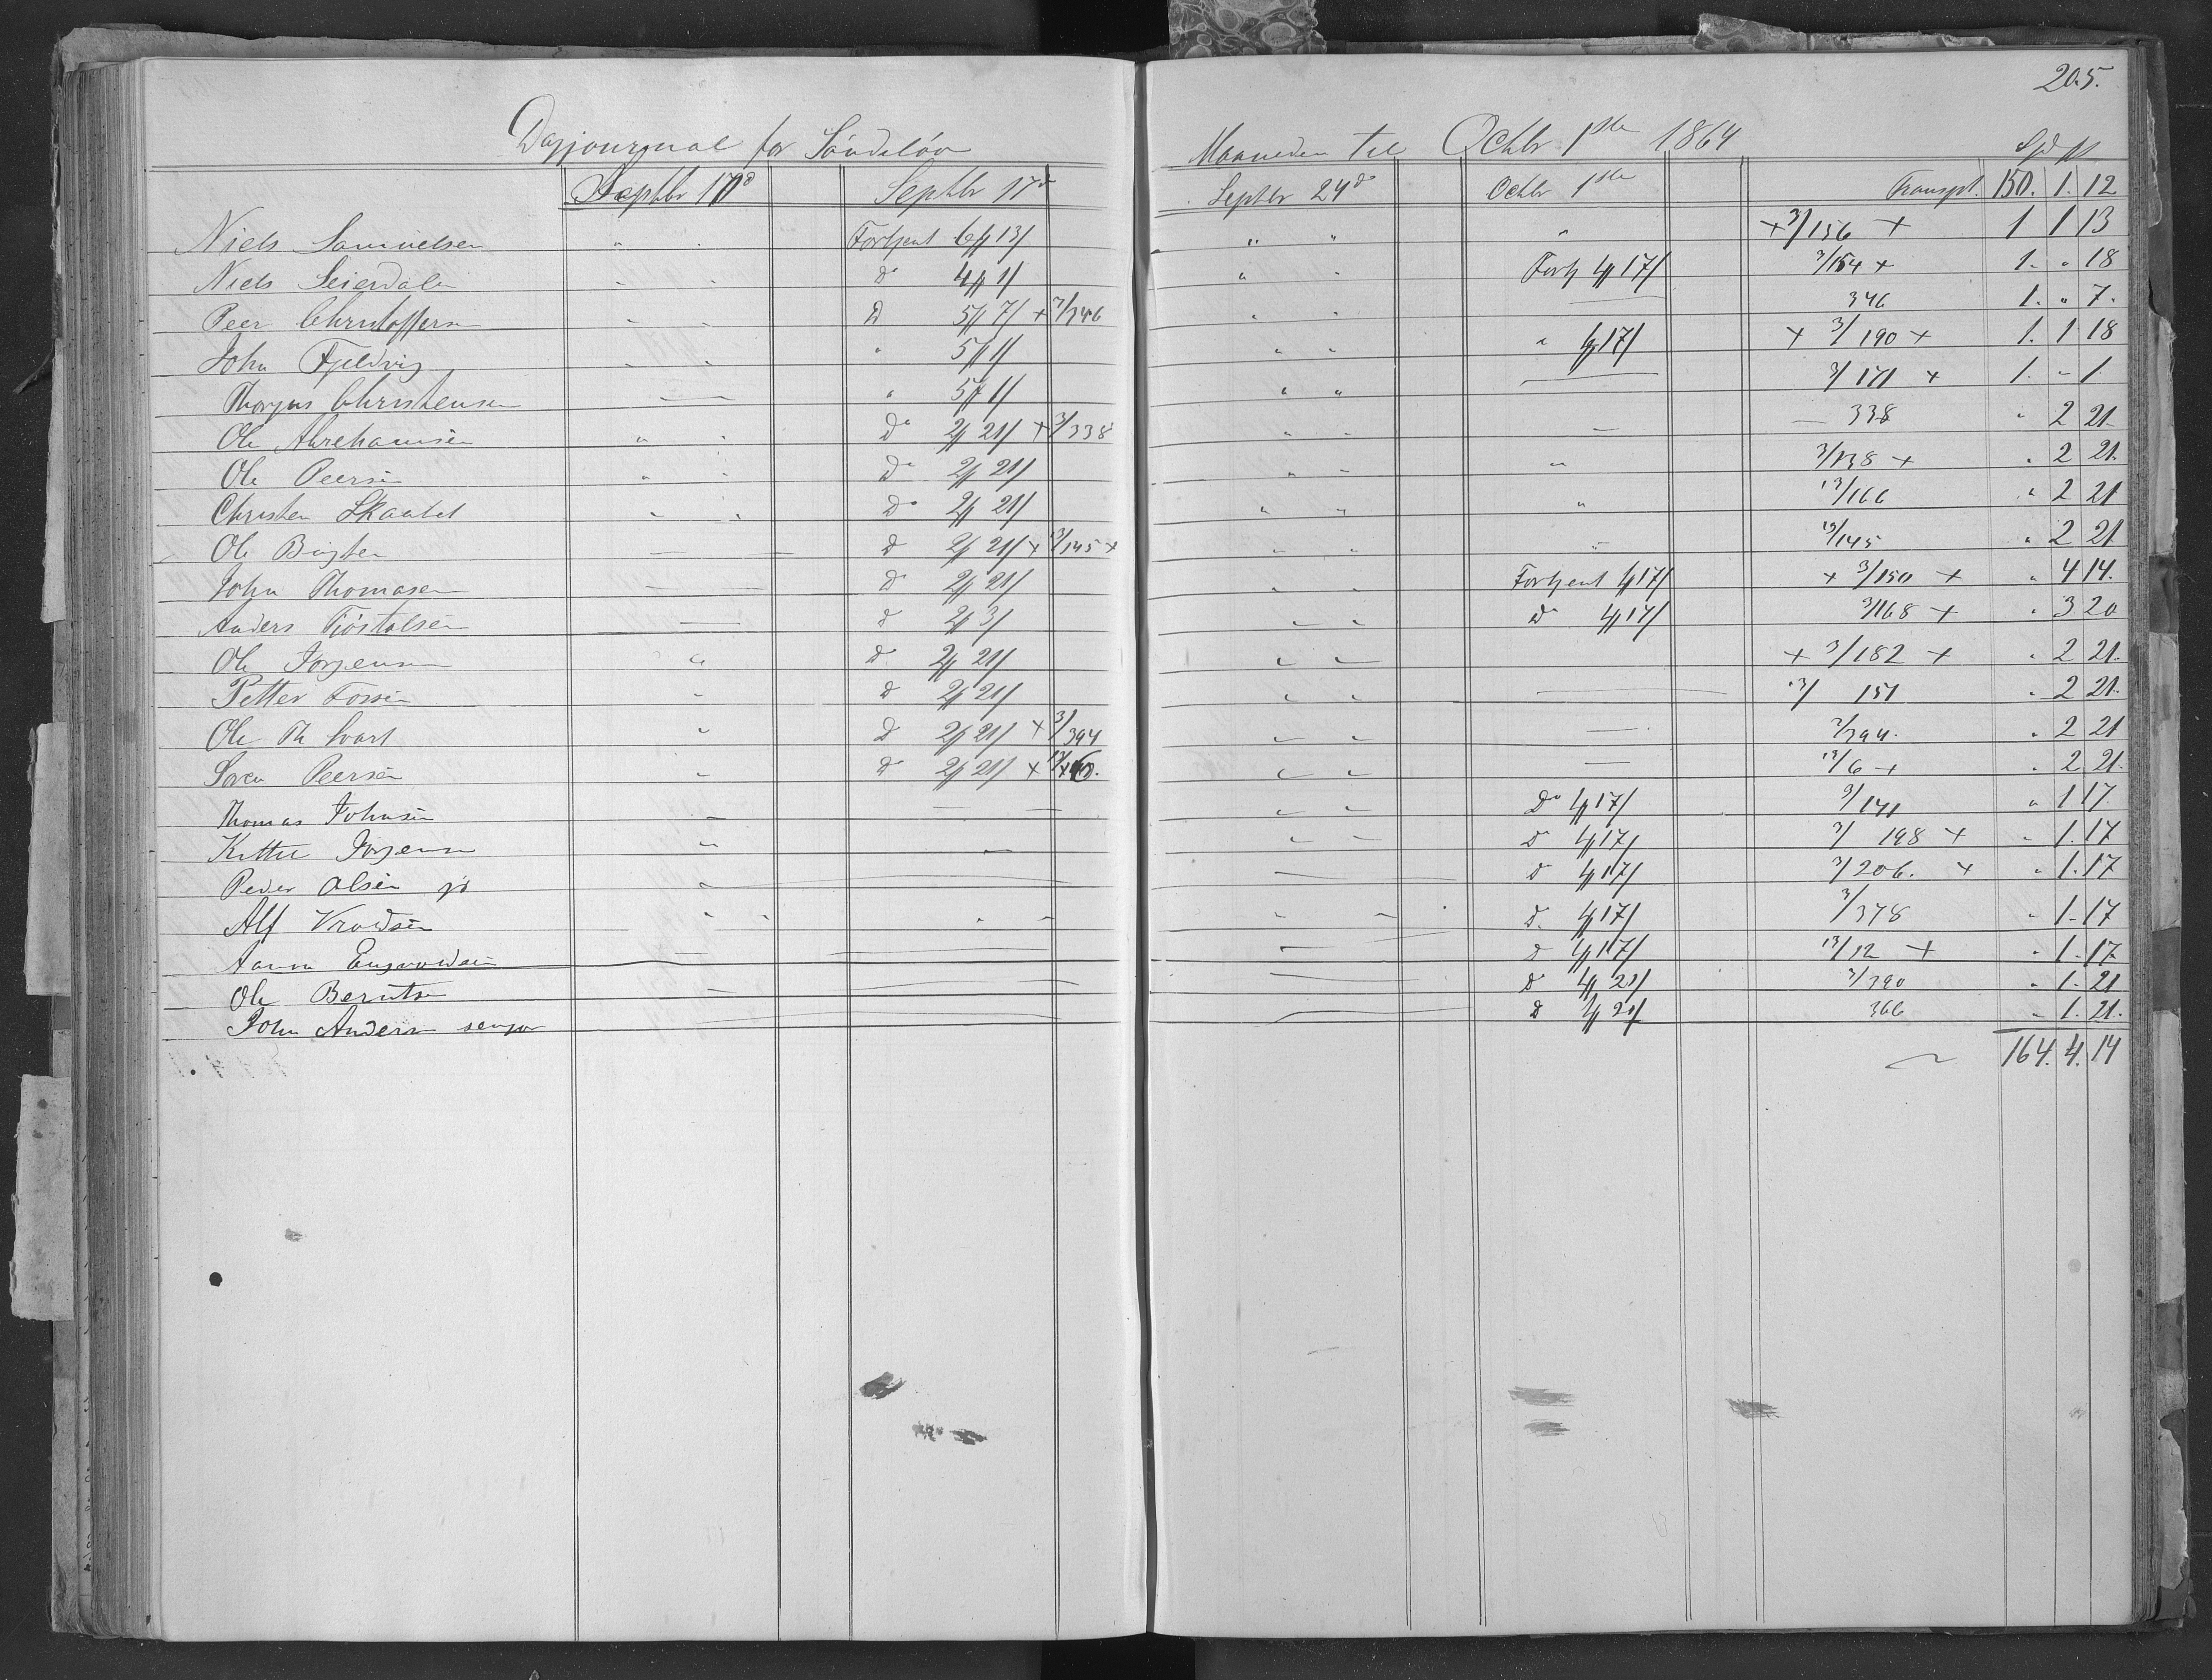 205.
Dagjournal for Söndeløv Maaneden til Octbr 1ste 1864
Spd
Septbr 17d Septbr 17d Septbr 24d Octbr 1ste Transpt. 150. 1. 12
Niels Samuelsen " Fortjent 6 13/ " " " + 3/156 + 1 1 13
Niels Seierdal - d 4 1/ " Fortj 4 17/ 3/154 + 1. " 18
Peer Christoffersen - D 5 7/ + 3/346 " — 346 1. " 7.
John Fjeldvig - " 5 1/ " " " 17/ + 3/190 + 1. 1 18
Thorjus Christensen — — " 5 1/ " " — 3/171 + 1. - 1
Ole Abrehamsen " Do 2 21/ + 3/338 " - — 338 " 2 21
Ole Peersen " Do 2 21/ " - " 3/138 + " 2 21.
Christen Skaatet " Do 2 21/ " " " 13/166 " 2 21
Ole D 2 21/ + 13/145 + " " 13/145 " 2 21
John Thomasen — — D 2 21/ " Fortjent 17/ + 3/150 + " 4 14.
Anders Tjöstolsen — d 2 3/ " - D 4 17/ 3/168 + " 3 20
Ole Jorgensen " D 2 21/ " - + 3/182 + " 2 21.
Petter Fossen " D 2 21/ " — 13/ 151 " 2 21.
Ole Th Svart " D 2 21/ + 3/394 " — 3/394. " 2 21
Soren Peersen " D 2 21/ + " — 13/6 + " 2 21.
Thomas Johnsen — — — " Do 17/ 3/141 " 1 17.
Kittel Jorgensen " — " - D 17/ 3/ 198 + " 1. 17
Peder Olsen " — D 17/ 3/206. + " 1. 17
Alf " - " - D. 17/ 3/378 " 1. 17
— — — D 17/ 13/12 + " 1 - 17
Ole Berntsen — — D 21/ 3/390 " 1 - 21
John Andersen senjor — D 21/ 366 " 1. 21.
164. 4. 14